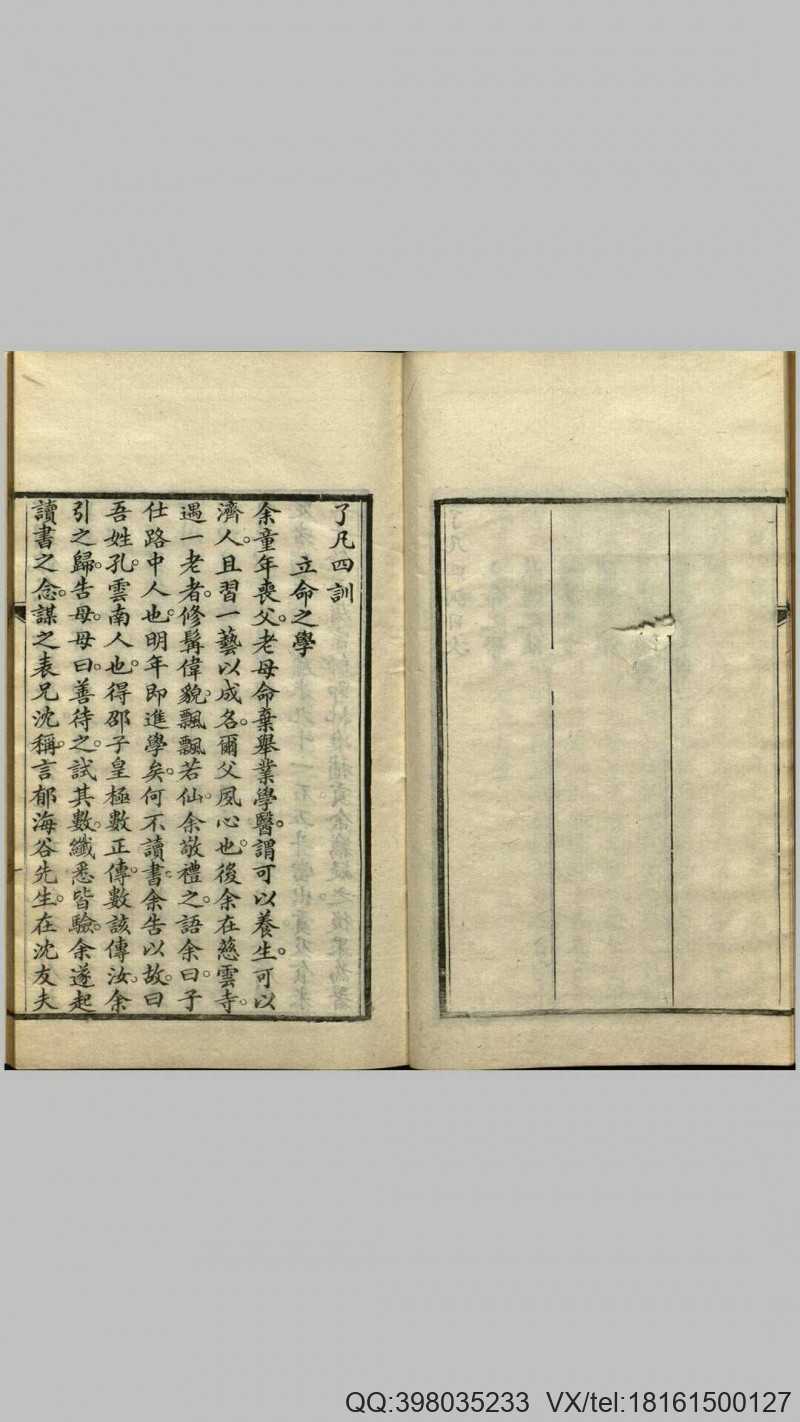 了凡四訓
立命之學
余童年喪父。老母命棄舉業學醫。謂可以養生。可以
濟人。且習一藝以成名。爾父夙心也。後余在慈雲寺。
遇一老者。修髯偉貌。飄飄若仙。余敬禮之。語余曰。子
仕路中人也。明年即進學矣。何不讀書。余告以故。曰
吾姓孔。雲南人也。得邵子皇極數正傳。數該傳汝。余
引之歸。告母。母曰。善待之。試其數。纖悉皆驗。余遂起
讀書之念。謀之表兄沈稱。言郁海谷先生。在沈友夫
QQ:398035233 VX/tel:18161500127